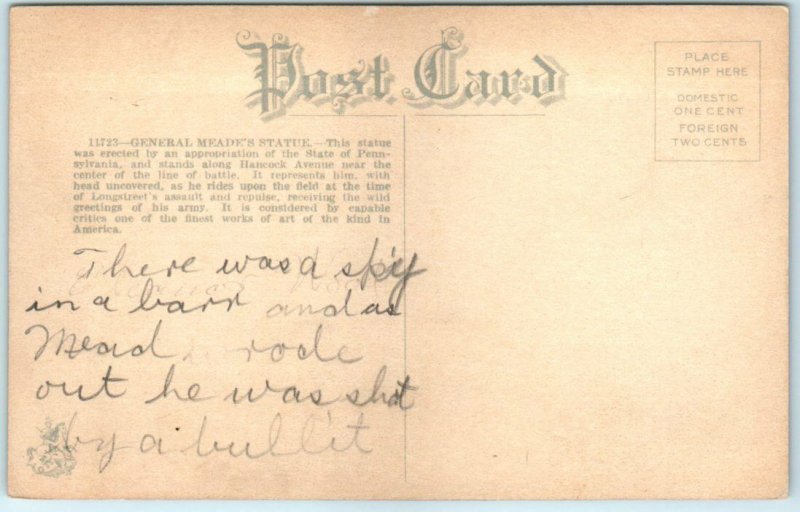 Post Card
PLACE
STAMP HERE
DOMESTIC
ONE CENT
FOREIGN
TWO CENTS
11723—GENERAL MEADE'S STATUE.—This statue
was erected by an appropriation of the State of Penn-
sylvania, and stands along Hancock Avenue near the
center of the line of battle. It represents him, with
head uncovered, as he rides upon the field at the time
of Longstreet's assault and repulse, receiving the wild
greetings of his army. It is considered by capable
critics one of the finest works of art of the kind in
America.
There was a spy
in a barr and as
Mead rode
out he was shot
by a bullit